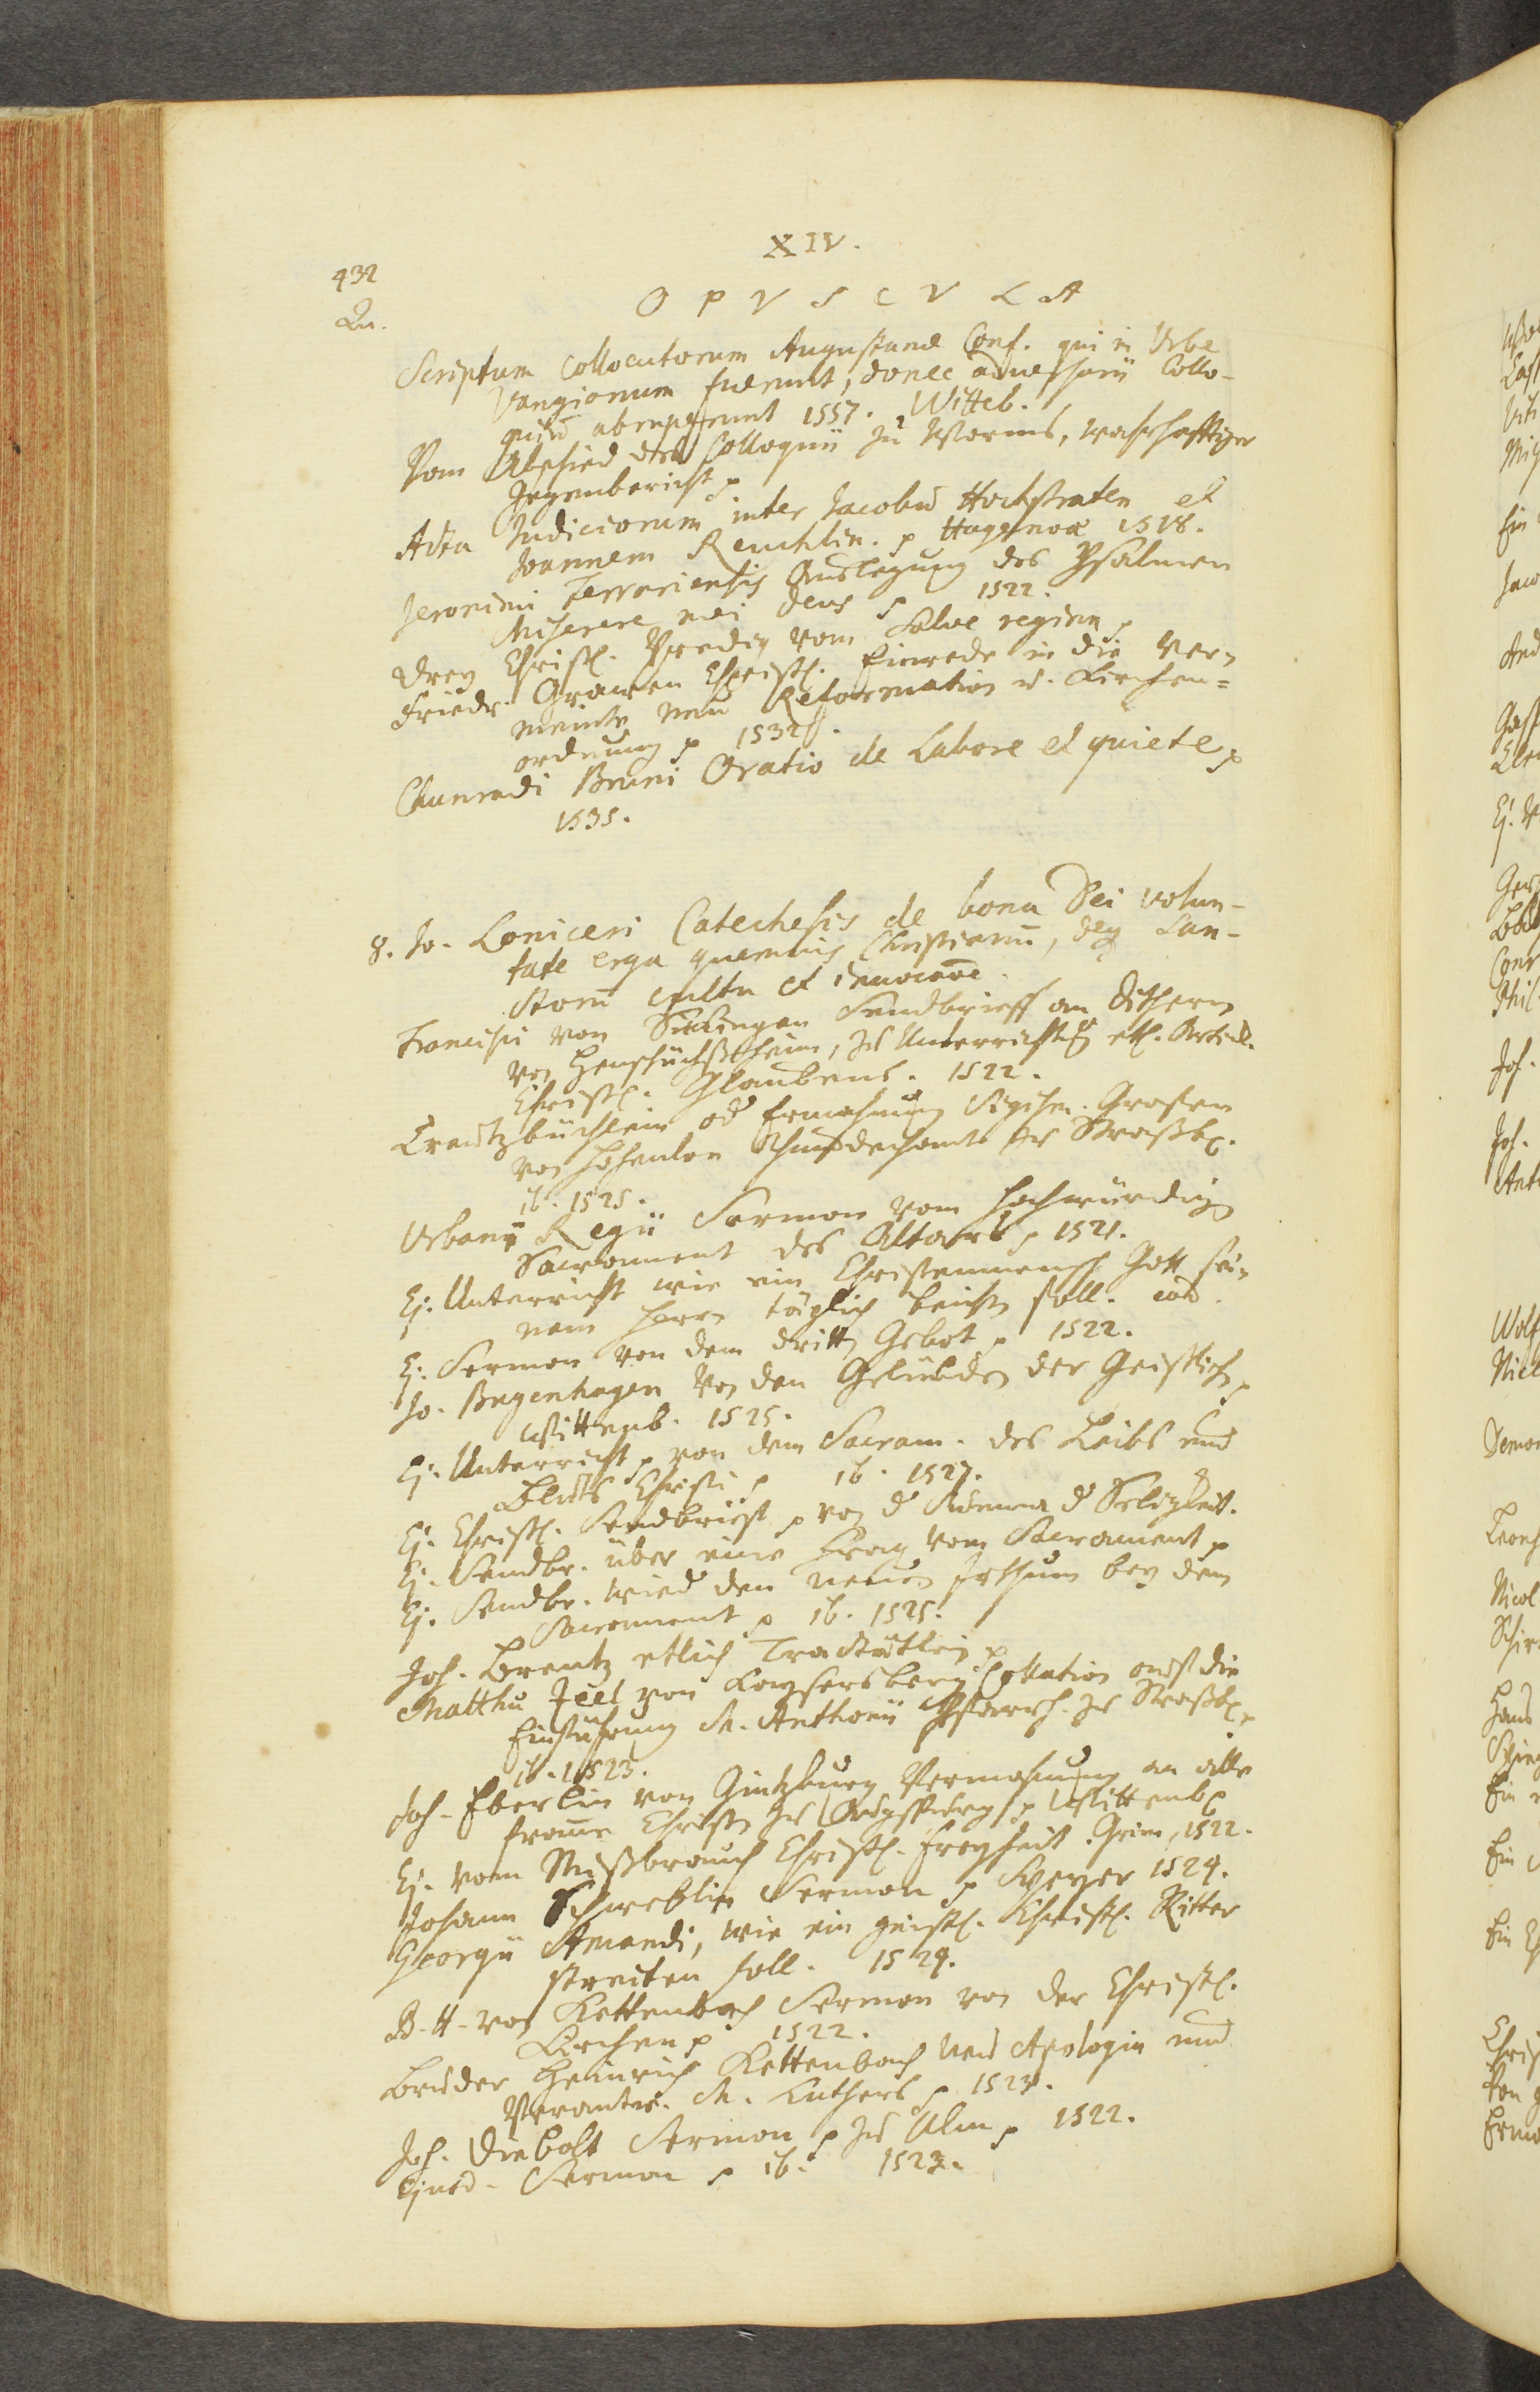 XIV.
432
Qu.
OPVSCVLA
Scriptum Collocutorum Augustanae Conf. qui in Urbe
Vangionum fuerunt, donec adversarii Collo-
quiū abruperunt 1557. Witteb.
Vom Abschied des Colloquii zu Worms, wahrhafftiger
Gegenbericht p
Acta Judiciorum inter Jacobū Hochstraten et
Joannem Reuchlin. p Haganoae 1518.
Jeronimi Ferrariensis Auslegung des Psalmen
Miserere mei Deus p 1522.
Drey Christl. Predig vom Salve regina p
Friedr. Grawen Christl. Einrede in die Ver-
meinte neue Reformation u. Kirchen-
ordnung p 1532.
Chunradi Bruni Oratio de Labore et quiete p
1535.
8. Jo. Loniceri Catechesis de bona Dei volun-
tate erga quemvis Christianū, deq San-
ctorū cultu et invocaōe.
Francisci von Sickingen Sendbrieff an Dithern
von Henschüchßheim, zu Unterrichtg etl. Articl.
Christl. Glaubens. 1522.
Creutzbüchlein od Ermahnung Sigism. Grafen
von Hohenloe Thumdechants zu Straßb.
ib. 1525.
Urbani Regii Sermon vom hochwürdign
Sacrament des Altars p 1521.
Ej. Unterricht wie ein Christenmensch Gott sei-
nem Herrn täglich beichtn soll. eod.
Ej. Sermon von dem dritten Gebot p 1522.
Jo. Bugenhagen Von den Gelübden der Geistlichn p
Wittenb. 1525.
Ej. Unterricht p von dem Sacram. des Leibs und
Bluts Christi p ib. 1527.
Ej. Christl. Sendbrieff p von d Summa d Seligkeit.
Ej. Sendbr. über eine Frag vom Sacrament p
Ej. Sendbr. wied den neuen Irthum bey dem
Sacrament p ib. 1525.
Joh. Brentz etlich Tractätlein p
Matthiä Zeel von Kaysersberg Collation auf die
Einführung M. Anthonii Pfarrh. zu Straßb.
ib. 1523.
Joh. Eberlin von Güntzburg Vermahnung an alle
frome Christen zu Augsspurg p Wittenb
Ej. vom Mißbrauch Christl. Freyheit. Grim, 1522.
Johann Schweblin Sermon p Speyer 1524.
Georgii Amandi, wie ein geistl. Christl. Ritter
streiten soll. 1524.
B. H. von Kettenbach Sermon von der Christl.
Kirchen p 1522.
Bruder Heinrich Kettenbach Neu Apologia und
Verantw. M. Luthers p 1523.
Joh. Diebolt Sermon p zu Ulm p 1522.
Ejusd. Sermon p ib. 1523.